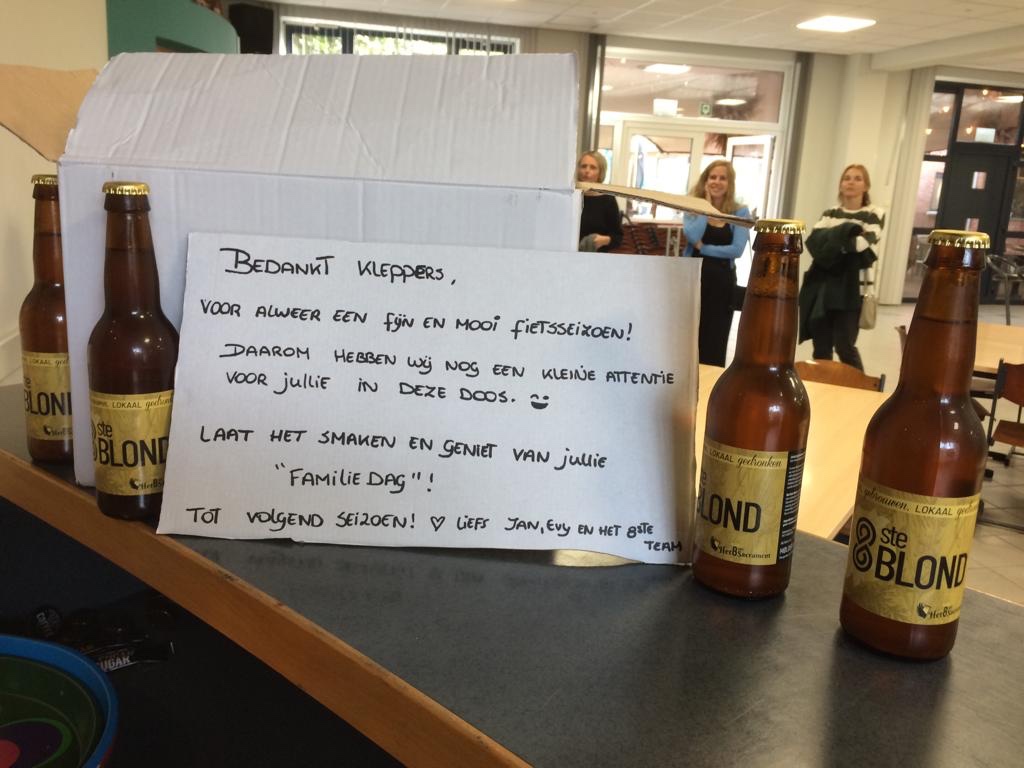 BEDANKT KLEPPERS,
VOOR ALWEER EEN fijn EN MOOI fiETSSEIZOEN!
DAAROM HEBBEN wij NOG EEN KLEINE ATTENTIE
VOOR jullie IN DEZE DOOS.
LAAT HET SMAKEN EN GENIET VAN jullie
"FAMILIE DAG"!
TOT VOLGEND SEIZOEN! ♡ LIEFS JAN, EVY EN HET 8STE
TEAM
BLOND
LOKAAL gedronken
8 ste
BLOND
Het8Sacrament
LOKAAL gedronken
BLOND
Het8steSacrament
gebrouwen. LOKAAL gedronken
8 ste
BLOND
Het8Sacrament
SUGAR